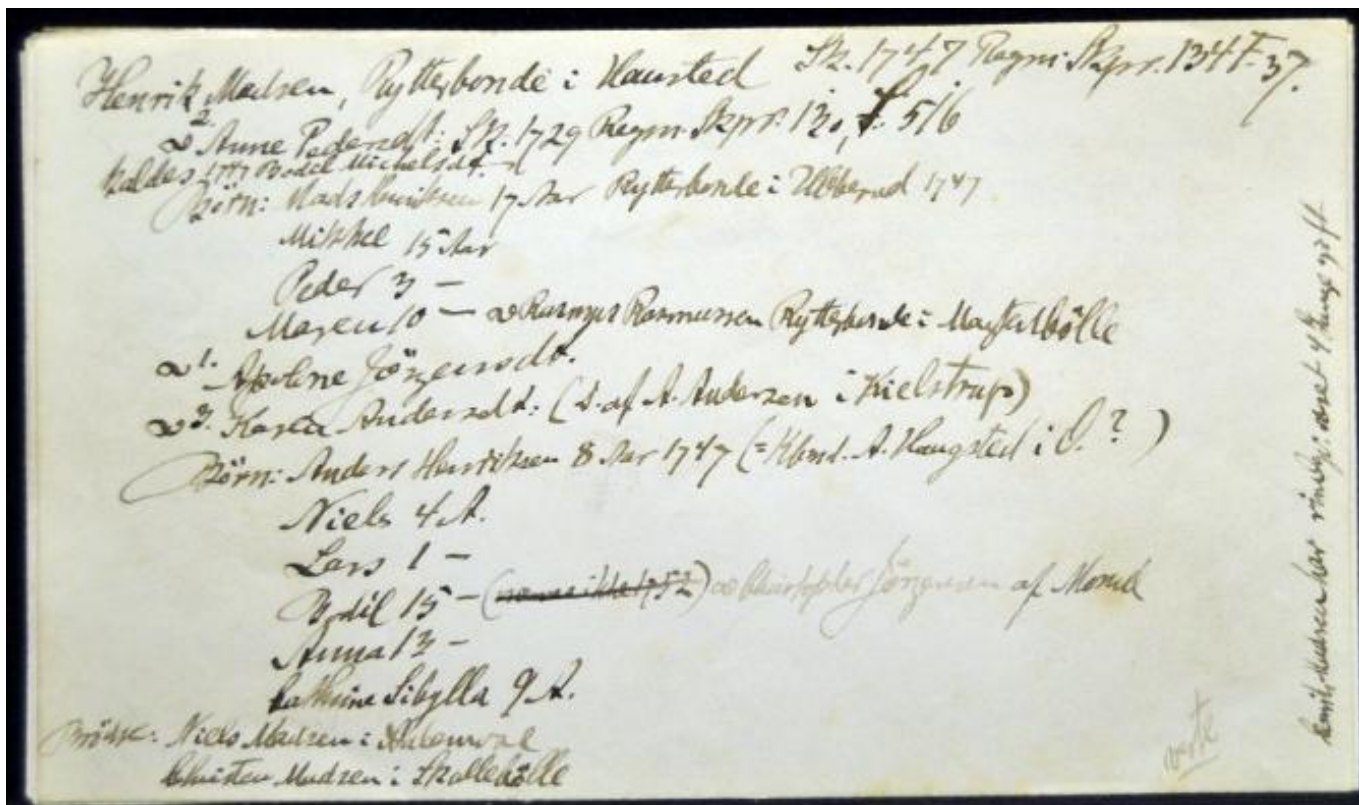 Henrik Madsen, Rytterbonde i Hausted Sk. 1747 Regm: Skpr. 134 F. 37.
∞ 2. Anne Pedersdt: Sk. 1729 Regm. Skpr. 130, f. 516
kaldes 1747 Bodil Michelsdt.
Börn: Mads Henriksen 17 Aar Rytterbonde i Ubberud 1747
Mikkel 15 Aar
Peder 3 —
Maren 10 — ∞ Rasmus Rasmussen Rytterbonde i Magtenbölle
∞ 1. Apolone Jörgensdt.
∞ 3. Karen Andersdt: (D. af A. Andersen i Kielstrup)
Börn: Anders Henriksen 8 Aar 1747 (= Kbmd. A. Haugsted i O.?)
Niels 4 A.
Lars 1 —
Bodil 15 — ∞ Christopher Jörgensen af Morud
Anna 13 —
Cathrine Sibylla 9 A.
Brödre: Niels Madsen i
Christen Madsen i Skallebölle
Madsen har været 4 Gange gift